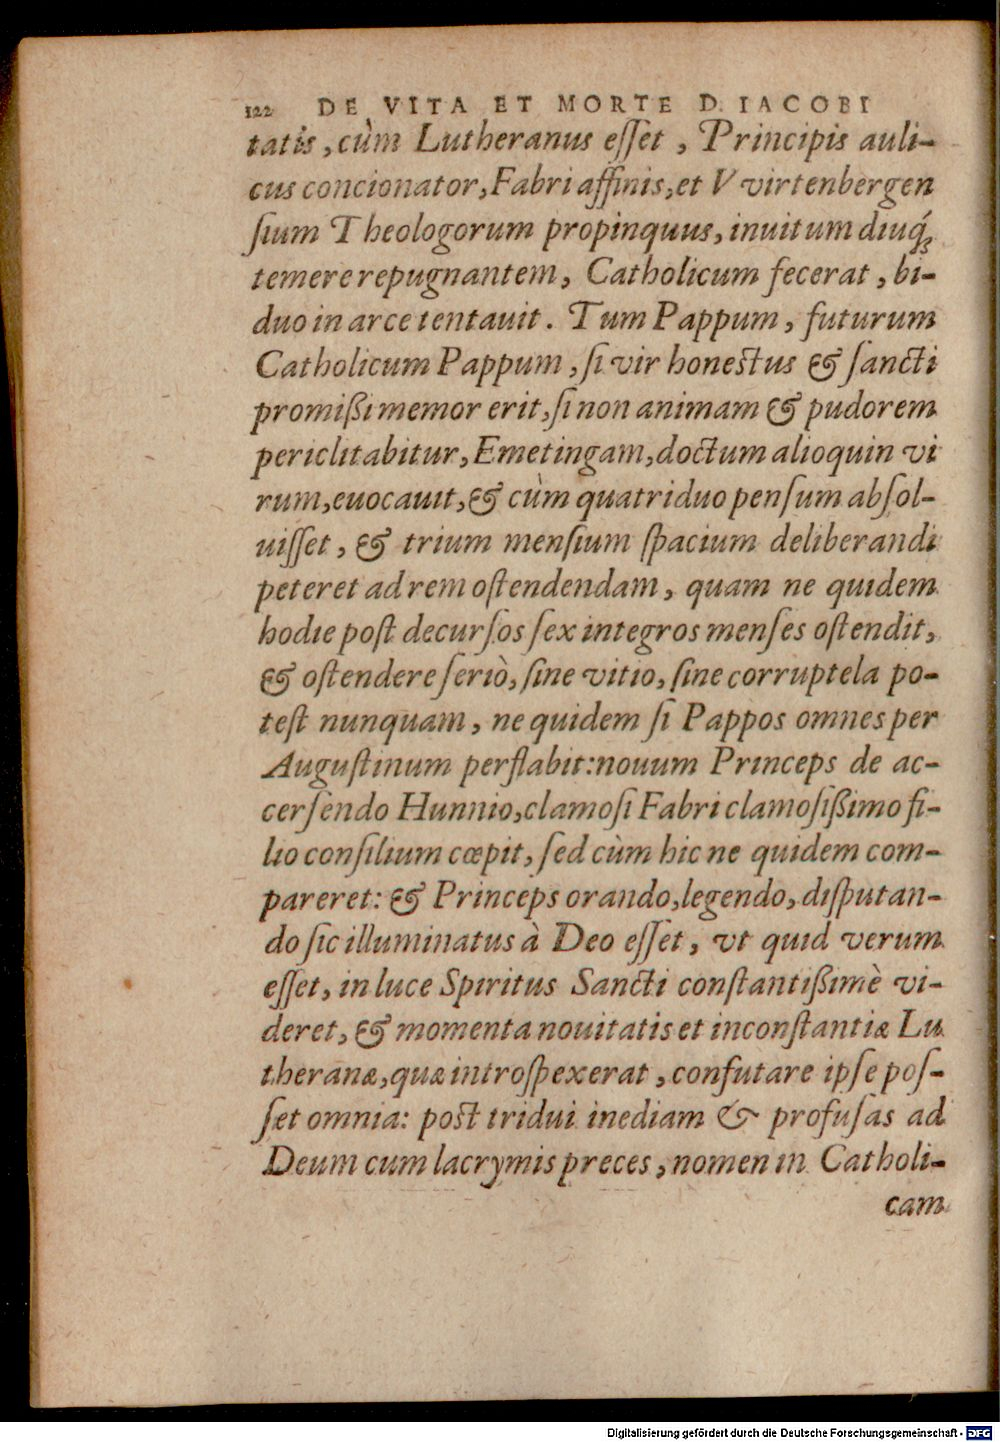 122 DE VITA ET MORTE D. IACOBI
tatis, cùm Lutheranus eſſet, Principis auli-
cus concionator, Fabri affinis, et VVirtenbergen
ſium Theologorum propinquus, inuitum diuq́ꝫ
temere repugnantem, Catholicum fecerat, bi-
duo in arce tentauit. Tum Pappum, futurum
Catholicum Pappum, ſi vir honestus & ſancti
promißi memor erit, ſi non animam & pudorem
periclitabitur, Emetingam, doctum alioquin vi
rum, euocauit, & cùm quatriduo penſum abſol-
uiſſet, & trium menſium ſpacium deliberandi
peteret ad rem oſtendendam, quam ne quidem
hodie poſt decurſos ſex integros menſes oſtendit,
& oſtendere ſeriò, ſine vitio, ſine corruptela po-
teſt nunquam, ne quidem ſi Pappos omnes per
Auguſtinum perflabit: nouum Princeps de ac-
cerſendo Hunnio, clamoſi Fabri clamoſißimo fi-
lio conſilium cœpit, ſed cùm hic ne quidem com-
pareret: & Princeps orando, legendo, diſputan-
do ſic illuminatus à Deo eſſet, vt quid verum
eſſet, in luce Spiritus Sancti conſtantißimè vi-
deret, & momenta nouitatis et inconſtantiæ Lu
theranæ, quæ introſpexerat, confutare ipſe poſ-
ſet omnia: post tridui inediam & profuſas ad
Deum cum lacrymis preces, nomen in Catholi-
cam
Digitalisierung gefördert durch die Deutsche Forschungsgemeinschaft - DFG